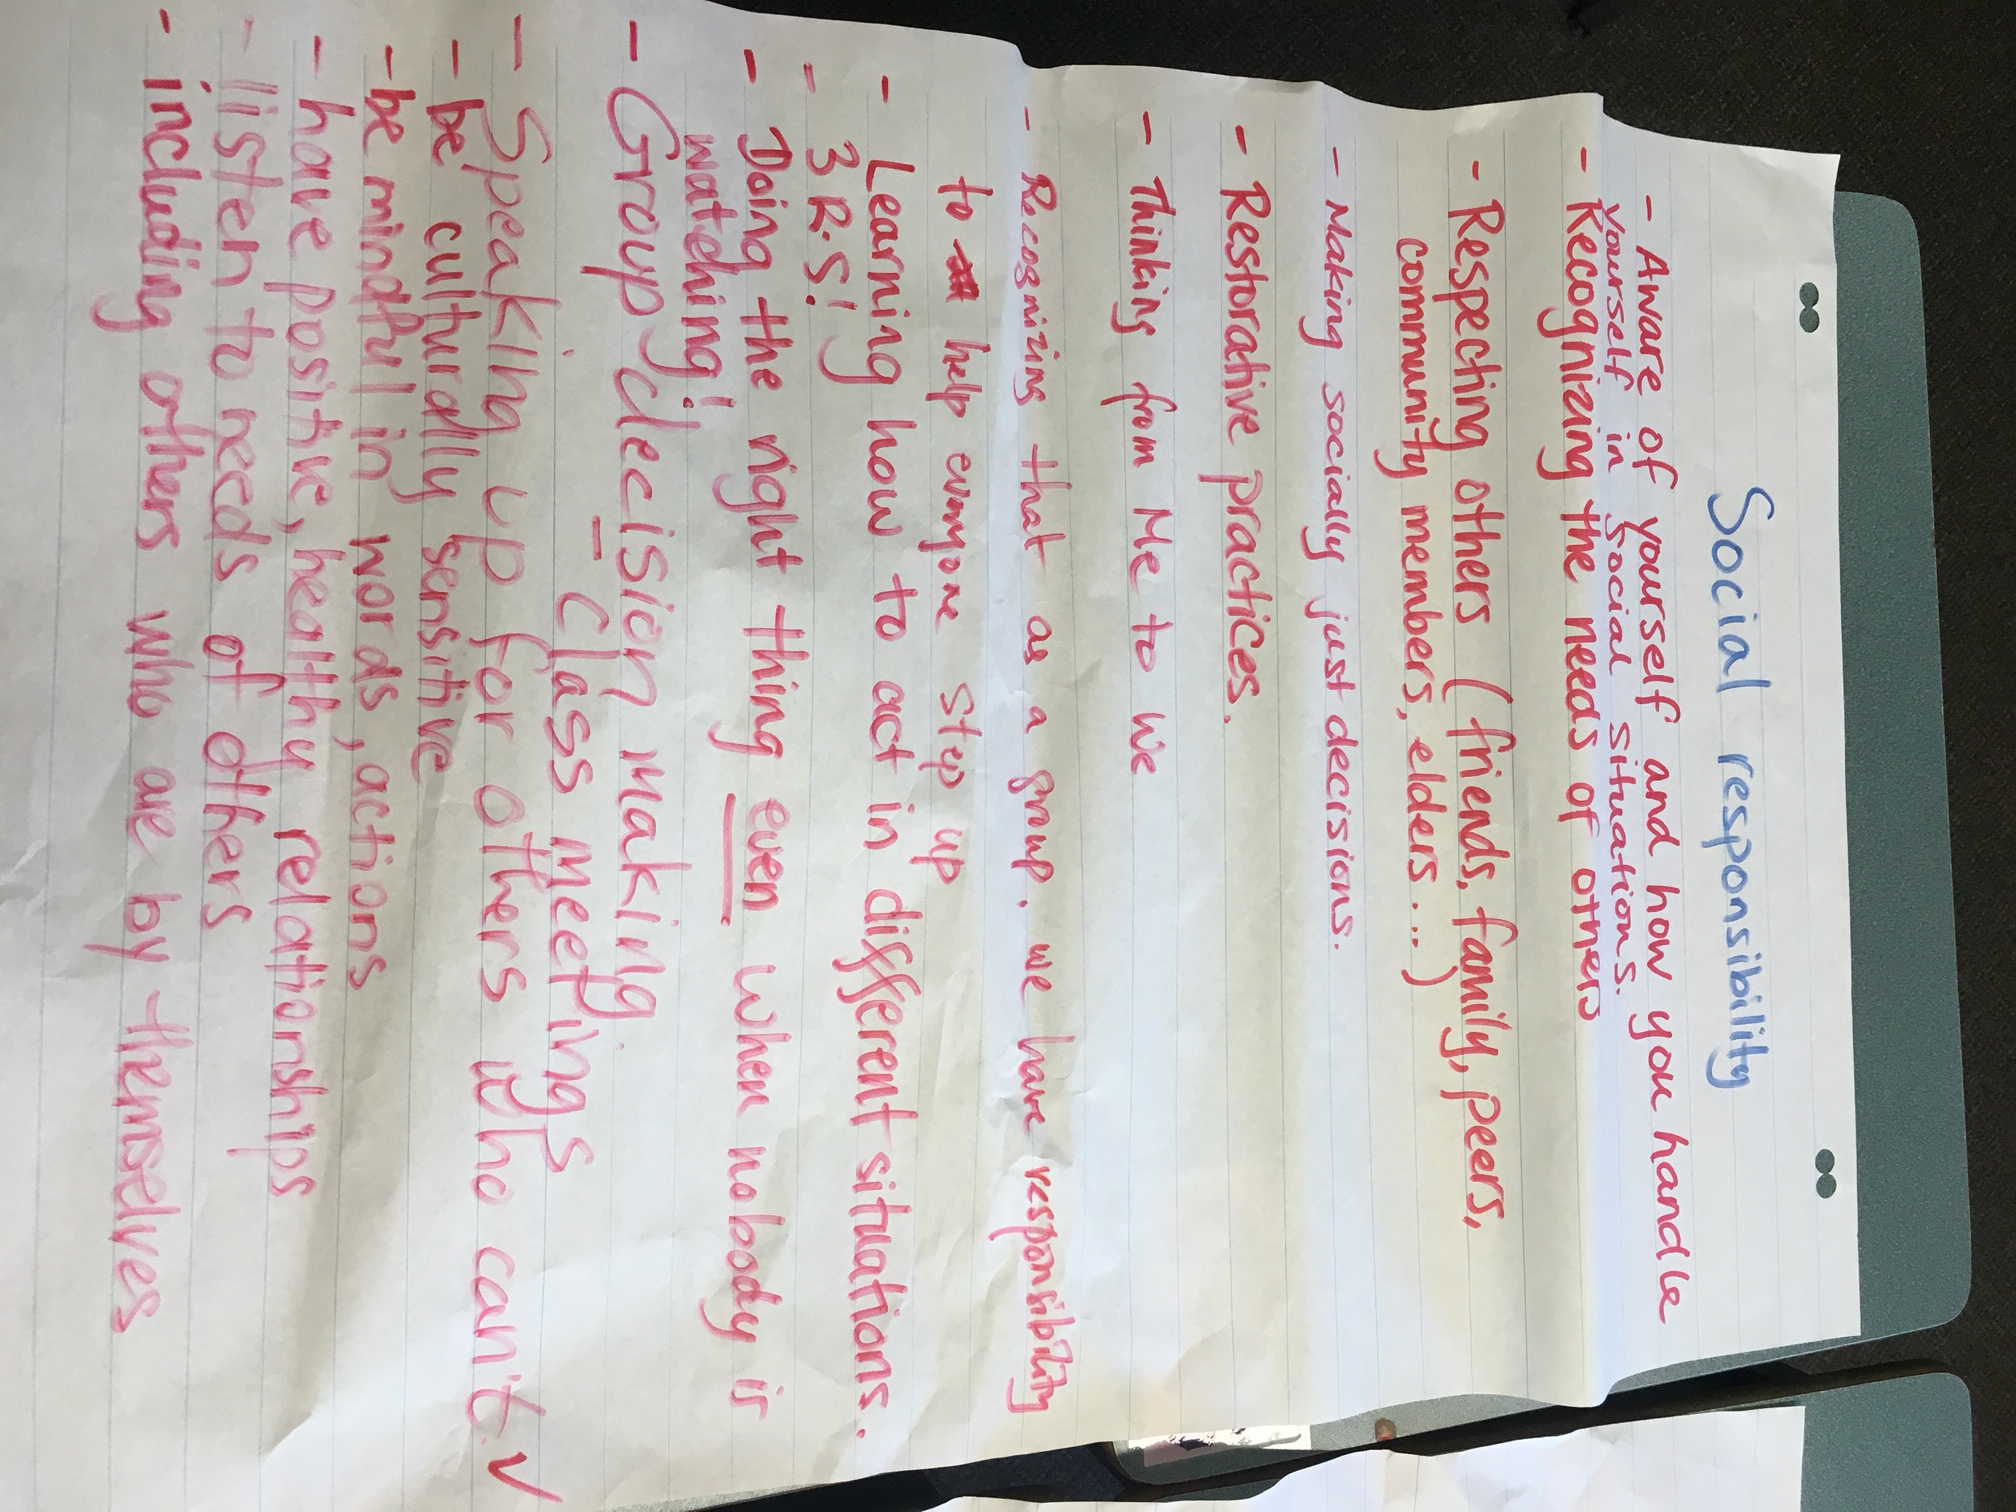 Social responsibility
- Aware of yourself and how you handle
yourself in social situations.
- Recognizing the needs of others
- Respecting others (friends, family, peers,
community members, elders...)
- Making socially just decisions.
- Restorative practices.
- Thinking from Me to We
- Recognizing that as a group, we have responsibility
to help everyone step up
- Learning how to act in different situations.
- 3 R.S!
- Doing the right thing even when nobody is
watching!
- Group decision making.
- Class meetings
- Speaking up for others who can't. ✓
- be culturally sensitive
- be mindful in words, actions
- have positive, healthy relationships
- listen to needs of others
- including others who are by themselves